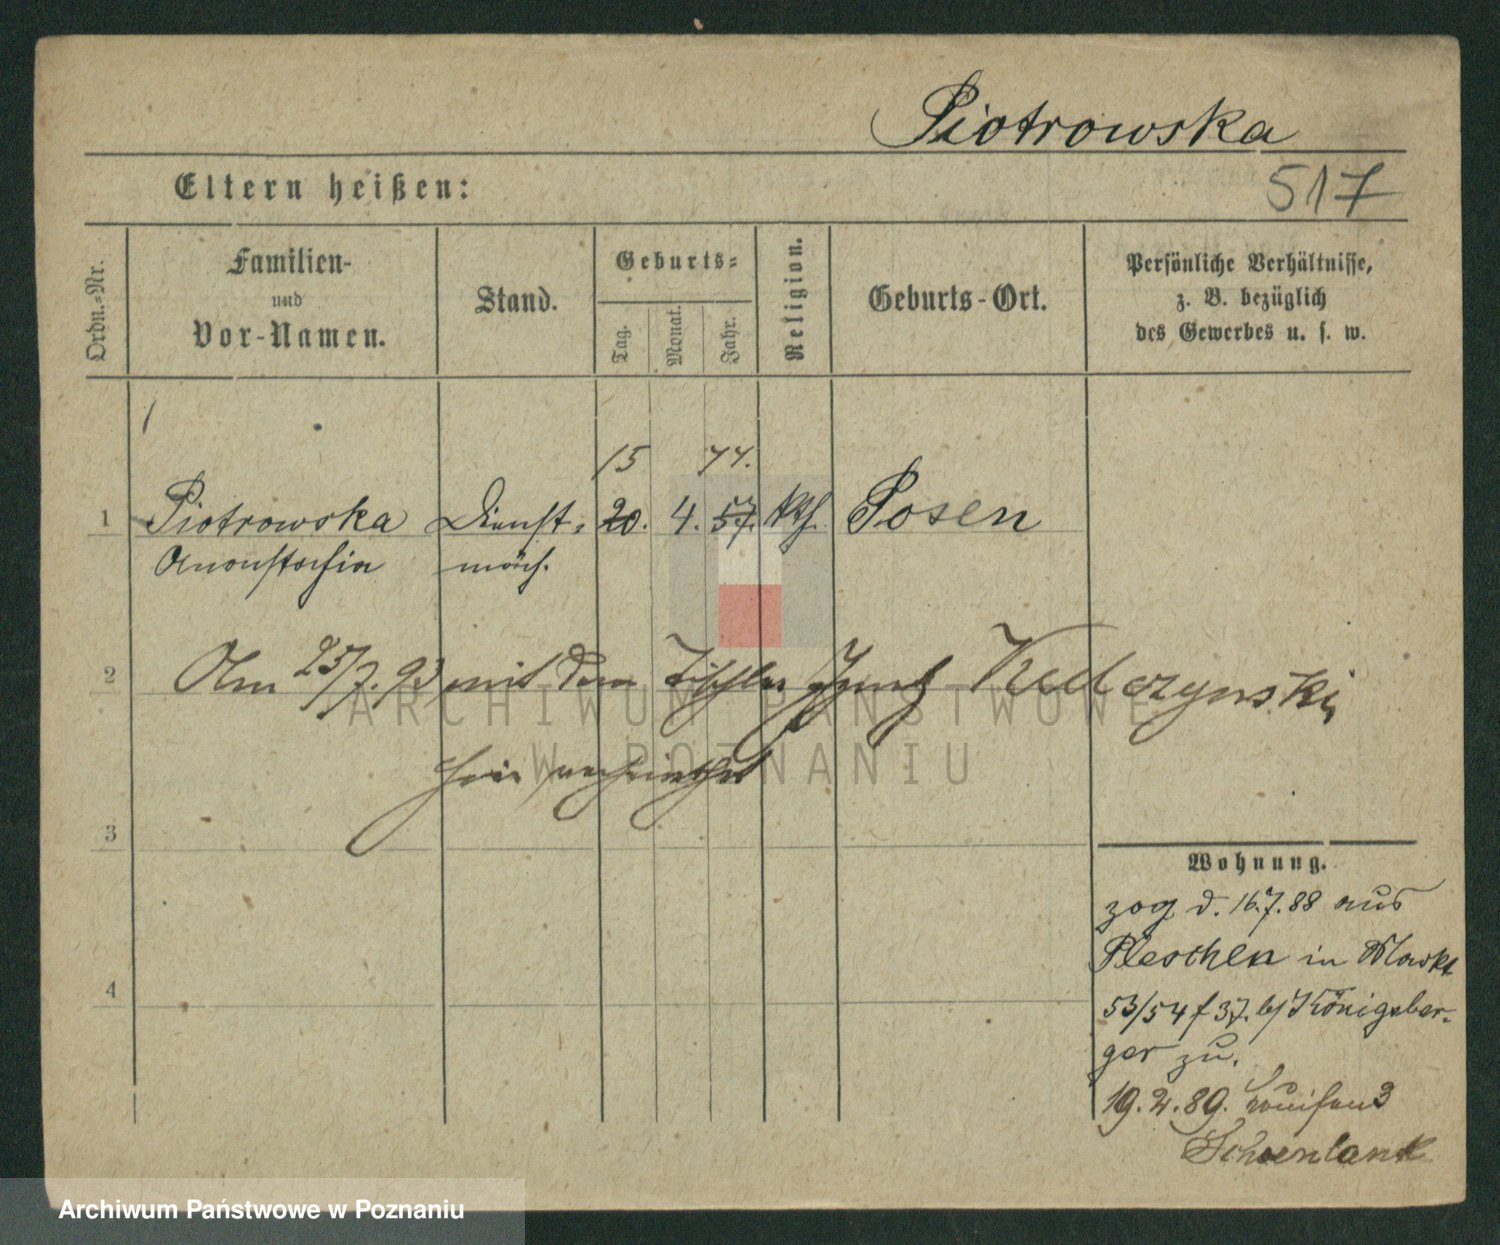 Piotrowska
517
Eltern heißen:
Ordn.-Nr.
Familien-
und
Vor-Namen.
Stand.
Geburts-
Tag.
Monat.
Jahr.
Religion.
Geburts-Ort.
Persönliche Verhältnisse,
z. B. bezüglich
des Gewerbes u. s. w.
15 74.
1 Piotrowska Dienst- 20. 4. 57. kth. Posen
Anastasia mäd.
2 Am 25/7. 93 mit dem Tischler Ignatz
hier verheirathet
3
4
Wohnung.
zog d. 16.7.88 aus
Pleschen in Markt
53/54 f 37. b/ Königsber-
ger zu.
19.2.89. Louisen 3
Schoenlank
ARCHIWUM PAŃSTWOWE
W POZNANIU
Archiwum Państwowe w Poznaniu